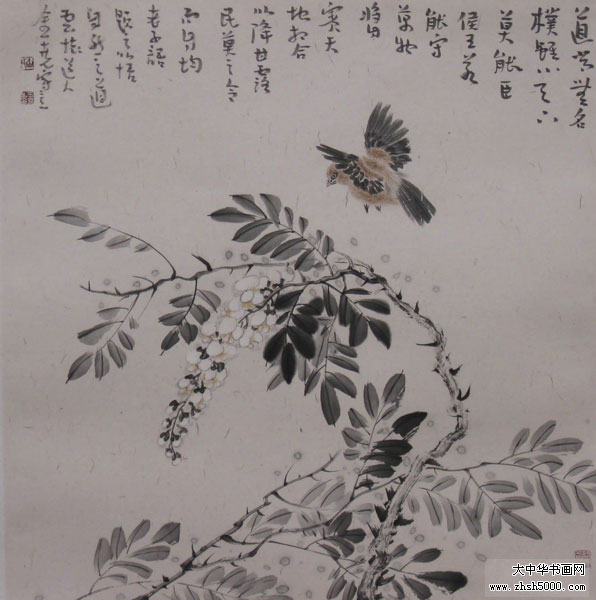 道常無名
樸雖小天下
莫能臣
侯王若
能守
萬物
將自
賓天
地相合
以降甘露
民莫之令
而自均
老子語
題之以悟
自然之道
道人
大中华书画网
www.zhsh5000.com